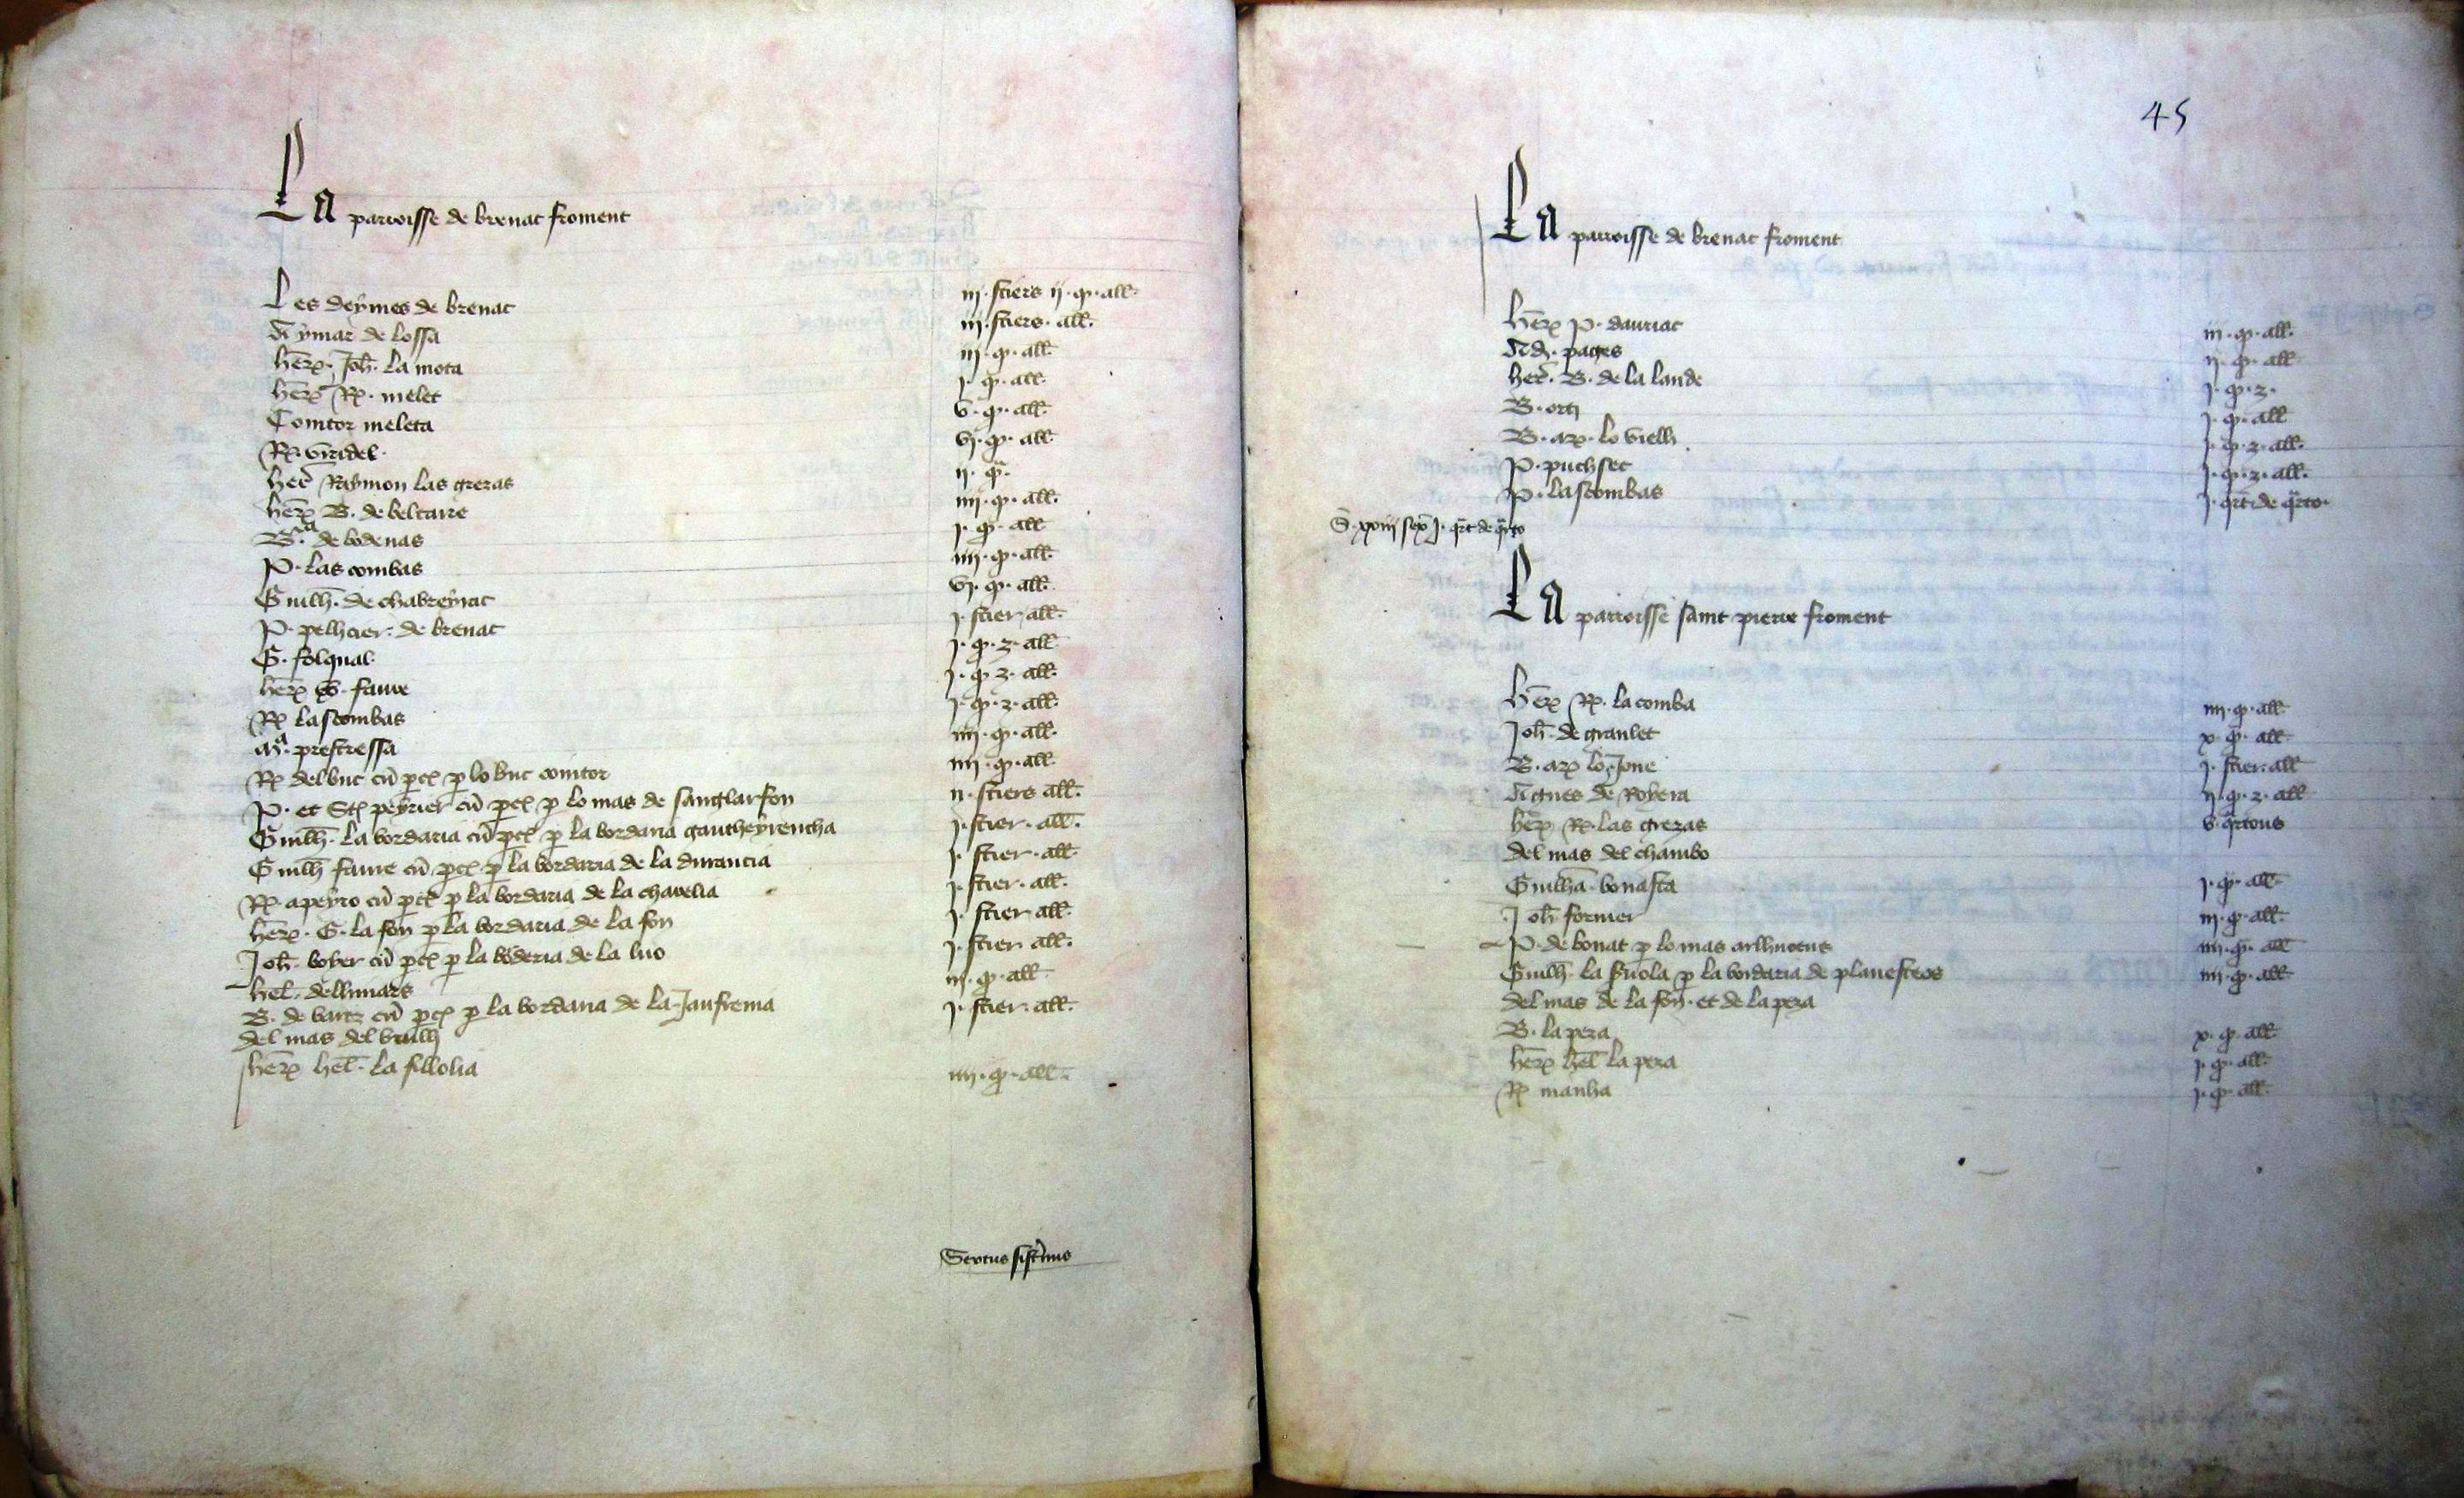 La parroisse de brenac froment
Les deymes de brenac iij. stiers ij. q. all.
Aymar de lossa iij. stiers. all.
her. Joh. la mota iij. q. all.
her R. melet j. q. all.
Comtor meleta v. q. all.
R. viridel. vj. q. all.
her Raymon las grezas ij. q.
her B. de belcaire iiij. q. all.
B.a de bodenas j. q. all
P. las combas iiij. q. all.
Guilh. de chabreyrac vj. q. all.
P. pelhcier. de brenac j. stier all.
G. folqual. j. q. z. all.
her G. faure j. q. z. all.
R lascombas j. q. z. all.
a prestressa iiij. q. all.
R delbuc cu pcs p lo buc comtor iiij. q. all.
P. et Ste peyrier cu pcs p lo mas de sanglarfon ij. stiers all.
Guilh. la bordaria cu pcs p la bordaria gautheyrencha j. stier. all.
Guilh faure cu pcs p la bordaria de la durancia j. stier. all.
R. apeyro cu pcs p la bordaria de la chavelia j. stier. all.
her. G. la fon p la bordaria de la fon j. stier all.
Joh. bober cu pcs p la boderia de la luo j. stier all.
hel. delhmars iij. q. all.
B. de bartz cu pcs p la bordaria de la Jaufrenia j. stier. all.
del mas del brulh
her hel. la fillolia iiij. q. all.
Sextus sisternus
45
La parroisse de brenac froment
her P. dauriac iij. q. all.
Ad. pages ij. q. all
her. B. de la lande j. q. z.
B. orti j. q. all
B. arx. lo vielh j. q. z. all.
P. puchset j. q. z. all.
P. lascombas j. qrt. de qrto.
S. xviij sex j. qrt de qrto
La parroisse saint pierre froment
her R. la comba iiij. q. all
Joh. de granlet x. q. all
B. arx lo Jone j. stier. all
Agnes de Robera ij. q. z. all
her R. las grezas v. qrtons
del mas del chambo
Guilha. bonafta j. q. all.
Joh former iij. q. all.
P. de bonat p lo mas arlhuotus iiij. q. all
Guilh. la fuola p la bordaria de planestros iiij. q. all
del mas de la fon. et de la peza
B. la peza x. q. all.
her hel la peza j. q. all.
R manha j. q. all.